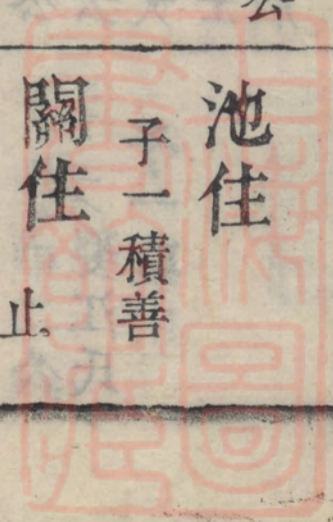 池住
子一積善
關住
止